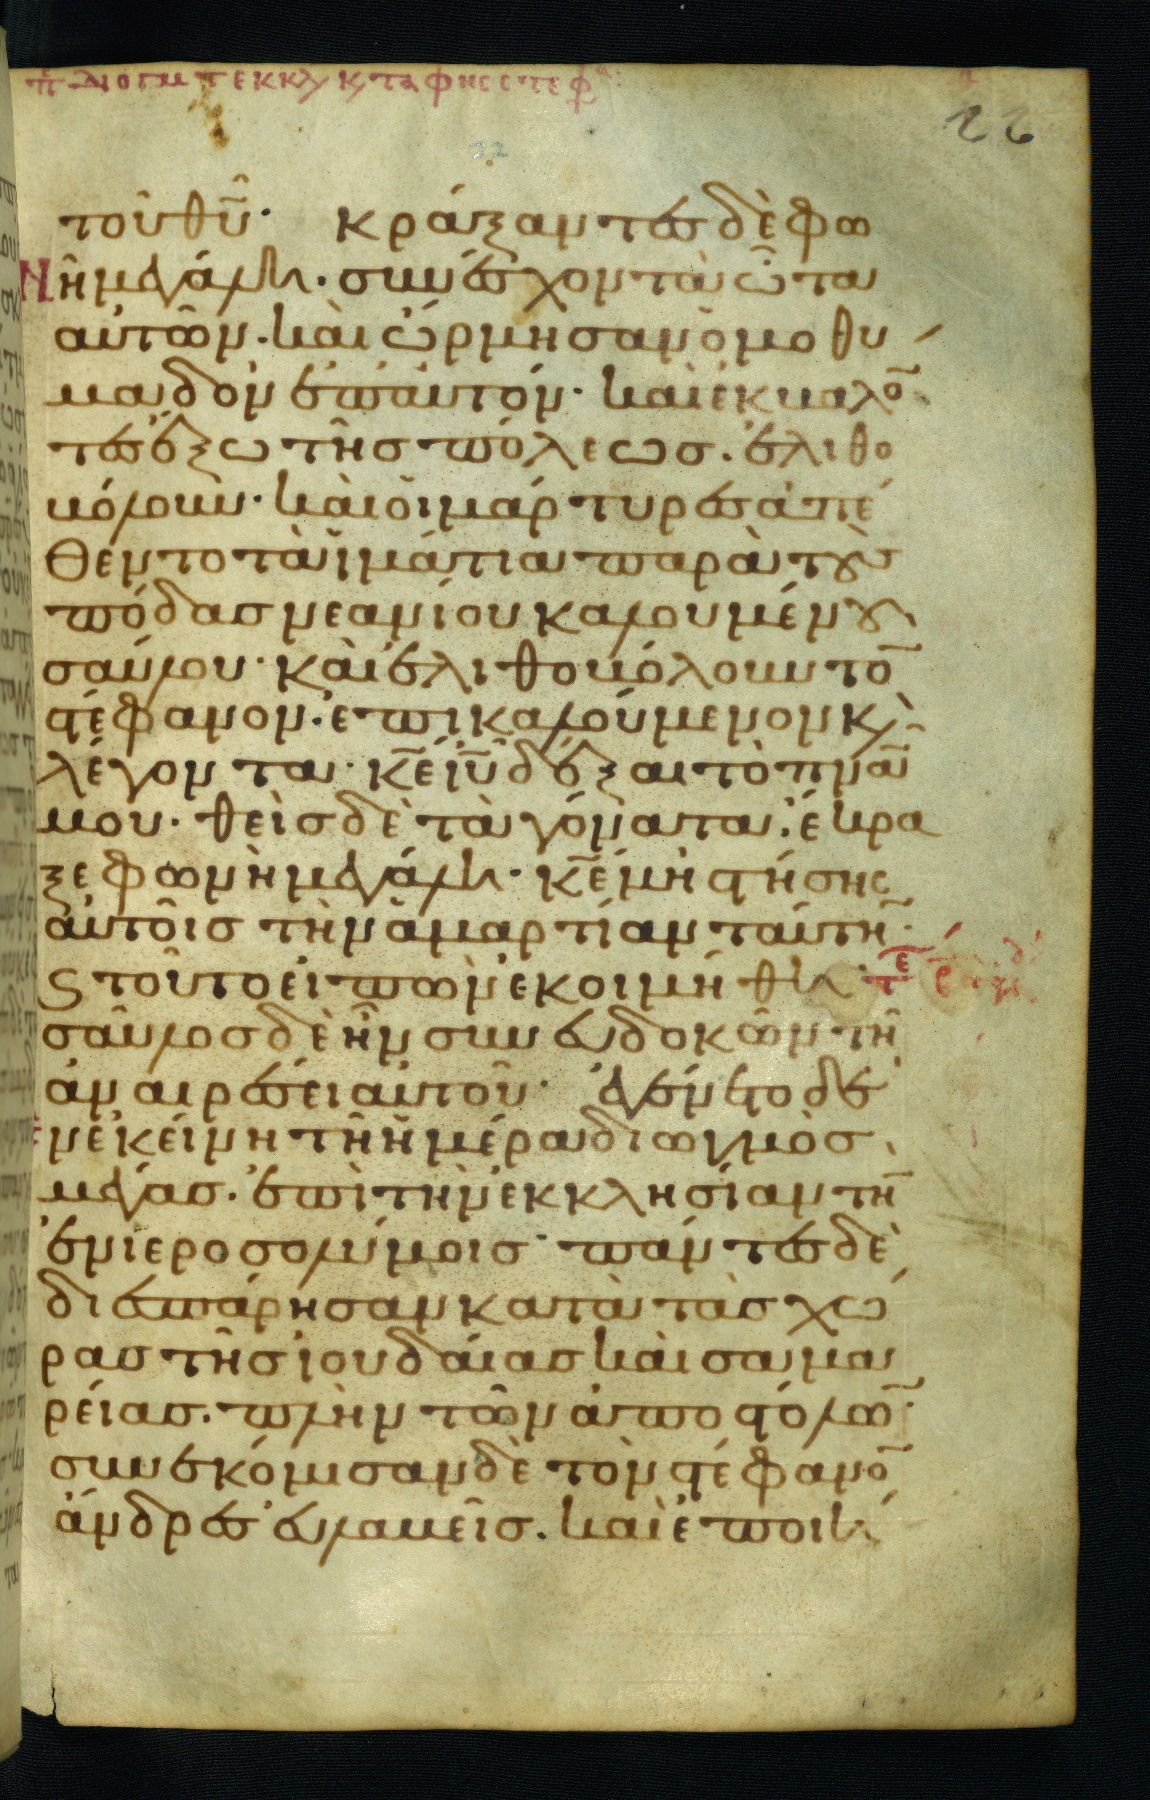 22
τοῦ θῦ· κράξαντες δὲ φω
νῆ μεγάλη· συνέσχον τὰ ὦτα
αὐτῶν. καὶ ὥρμησαν ὁμοθυ
μαδὸν ἐπ' αὐτόν· καὶ ἐκβαλό
τες ἔξω τῆς πόλεως. ἐλιθο
βόλουν· καὶ οἱ μάρτυρες ἀπέ
θεντο τὰ ἱμάτια παρὰ τοὺς
πόδας νεανίου καλουμένου
σαύλου· καὶ ἐλιθοβόλουν τὸ
στέφανον. ἐπικαλούμενον κὶ
λέγοντα· κε ιυ δέξαι τὸ πνα
μου· θεὶς δὲ τὰ γόνατα. ἔκρα
ξε φωνὴ μεγάλη· κε μὴ στήσης
αὐτοῖς τὴν ἁμαρτίαν ταύτη·
Ϛ τοῦτο εἰπὼν ἐκοιμήθη·
σαῦλος δὲ ἦν συνευδοκῶν τῆ
ἀναιρέσει αὐτοῦ· ἐγένετο δὲ
ἐν ἐκείνη τῆ ἡμέρα διωγμὸς
μέγας. ἐπὶ τὴν ἐκκλησίαν τὴ
ἐν ἱεροσολύμοις· πάντες δὲ
διεσπάρησαν κατὰ τὰς χώ
ρας τῆς ἰουδαίας καὶ σαμα
ρείας. πλὴν τῶν ἀποστόλω·
συνεκόμισαν δὲ τὸν στέφανο
ἄνδρες εὐλαβεῖς. καὶ ἐποιή